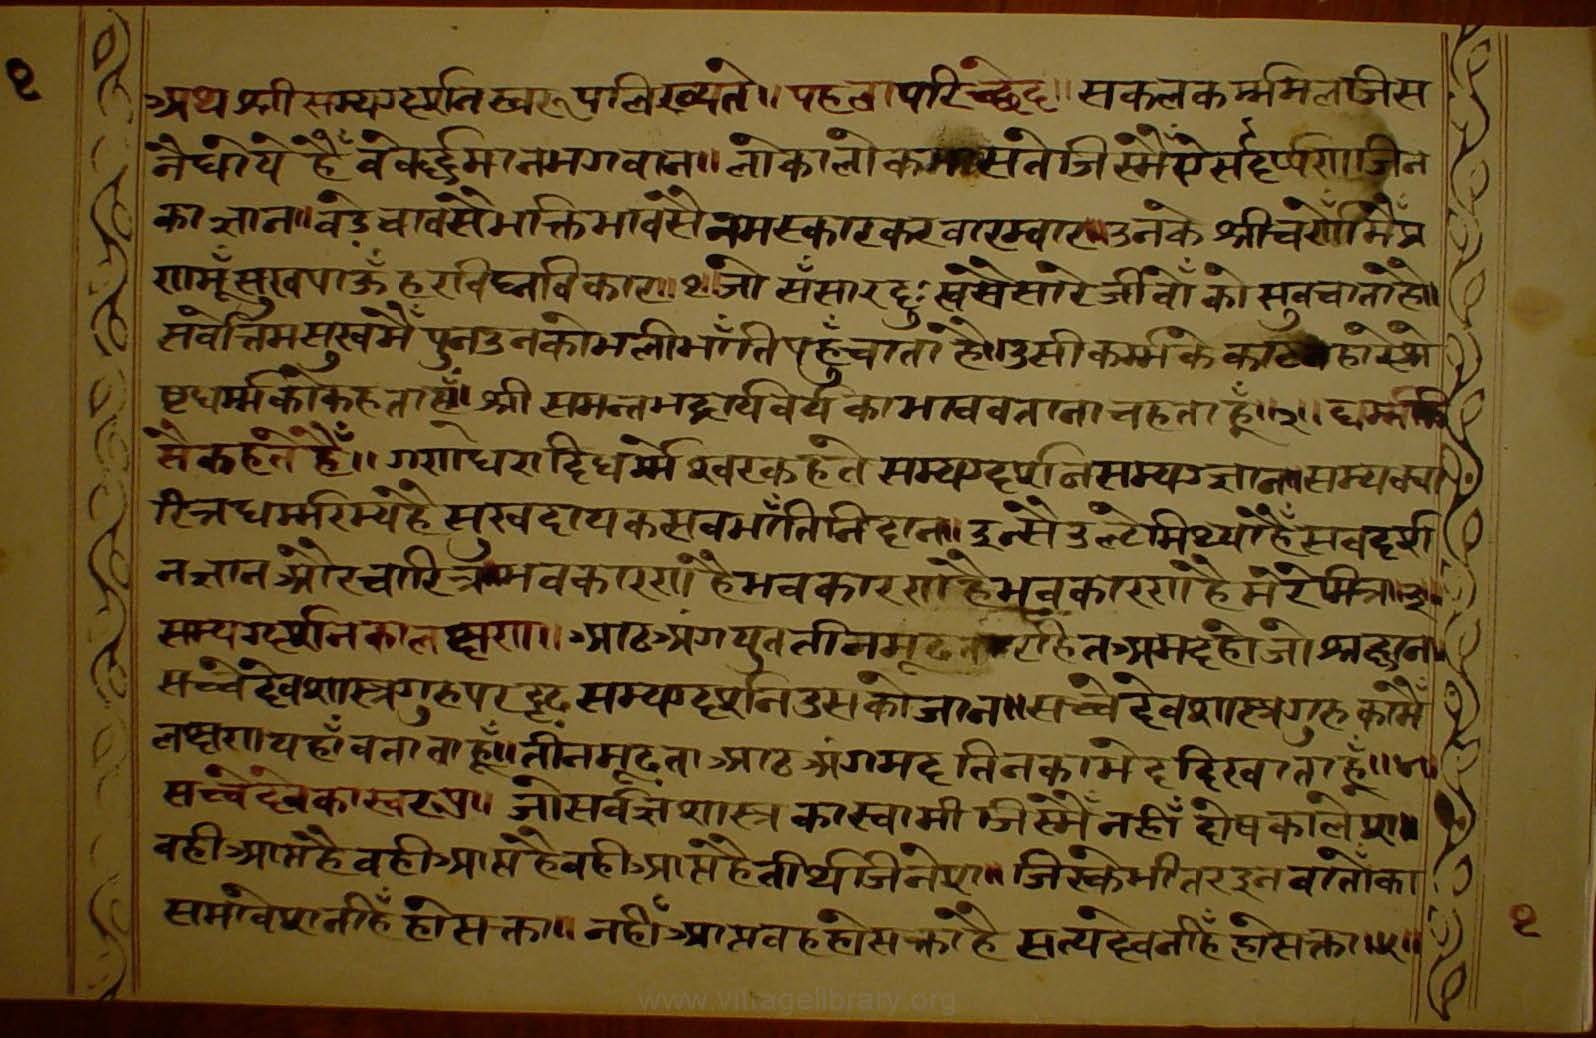 १
अथ श्री सम्यग्दर्शन स्वरूप लिख्यते॥ पहला परिच्छेद॥ सकल कर्म्ममल जिस
नै धोये हैँ वे वर्द्धमान भगवान॥ लोकालोक भासते जिस्मैँ ऐसे दर्प्पण जिन
का ज्ञान॥ बड़े चावसै भक्ति भावसै नमस्कार कर वारम्वार॥ उनके श्री चर्णो मैँ प्र
णमूँ सुख पाऊँ हर विघ्न विकार॥१॥ जो सँसार दुःख सै सारे जीवोँ को सुवचाता है॥
सर्वोत्तम सुख मैँ पुन उनको भली भाँति पहुँचाता है॥ उसी कर्म्म के काट
ष्ट धर्म्म को कहता हूँ॥ श्री समन्तभद्रार्य वर्य का भाव वताना चहता हूँ॥२॥ धर्म्म कि
सै कहते हैँ॥ गणधरादि धर्म्मेश्वर कहते सम्यग्दर्शन सम्यग्ज्ञान॥ सम्यक्चा
रित्र धर्म्म रम्य है सुखदायक सव भाँति निदान॥ इन्सै उल्टे मिथ्या हैँ सव दर्श
न ज्ञान और चारित्र॥ भव कारण है भव कारण है भव कारण है मेरे मित्र॥३॥
सम्यग्दर्शन का लक्षण॥ आठ अंग युत तीन मूढता रहित अमद हो जो श्रद्धान॥
सच्चे देव शास्त्र गुरु पर दृढ सम्यग्दर्शन उसको जान॥ सच्चे देव शास्त्र गुरु का मैँ
लक्षण यहाँ वताता हूँ॥ तीन मूढता आठ अंग मद तिन का भेद दिखाता हूँ॥४॥
सच्चे देव का स्वरूप॥ जो सर्वज्ञ शास्त्र का स्वामी जिस्मैँ नहीँ दोष का लेश॥
वही आप्त है वही आप्त है वही आप्त है तीर्थ जिनेश॥ जिस्के भीतर इन वातोँ का
समावेश नहिँ हो सक्ता॥ नहीँ आप्त वह हो सक्ता है सत्य देव नहिँ हो सक्ता॥५॥
१
www.villagelibrary.org